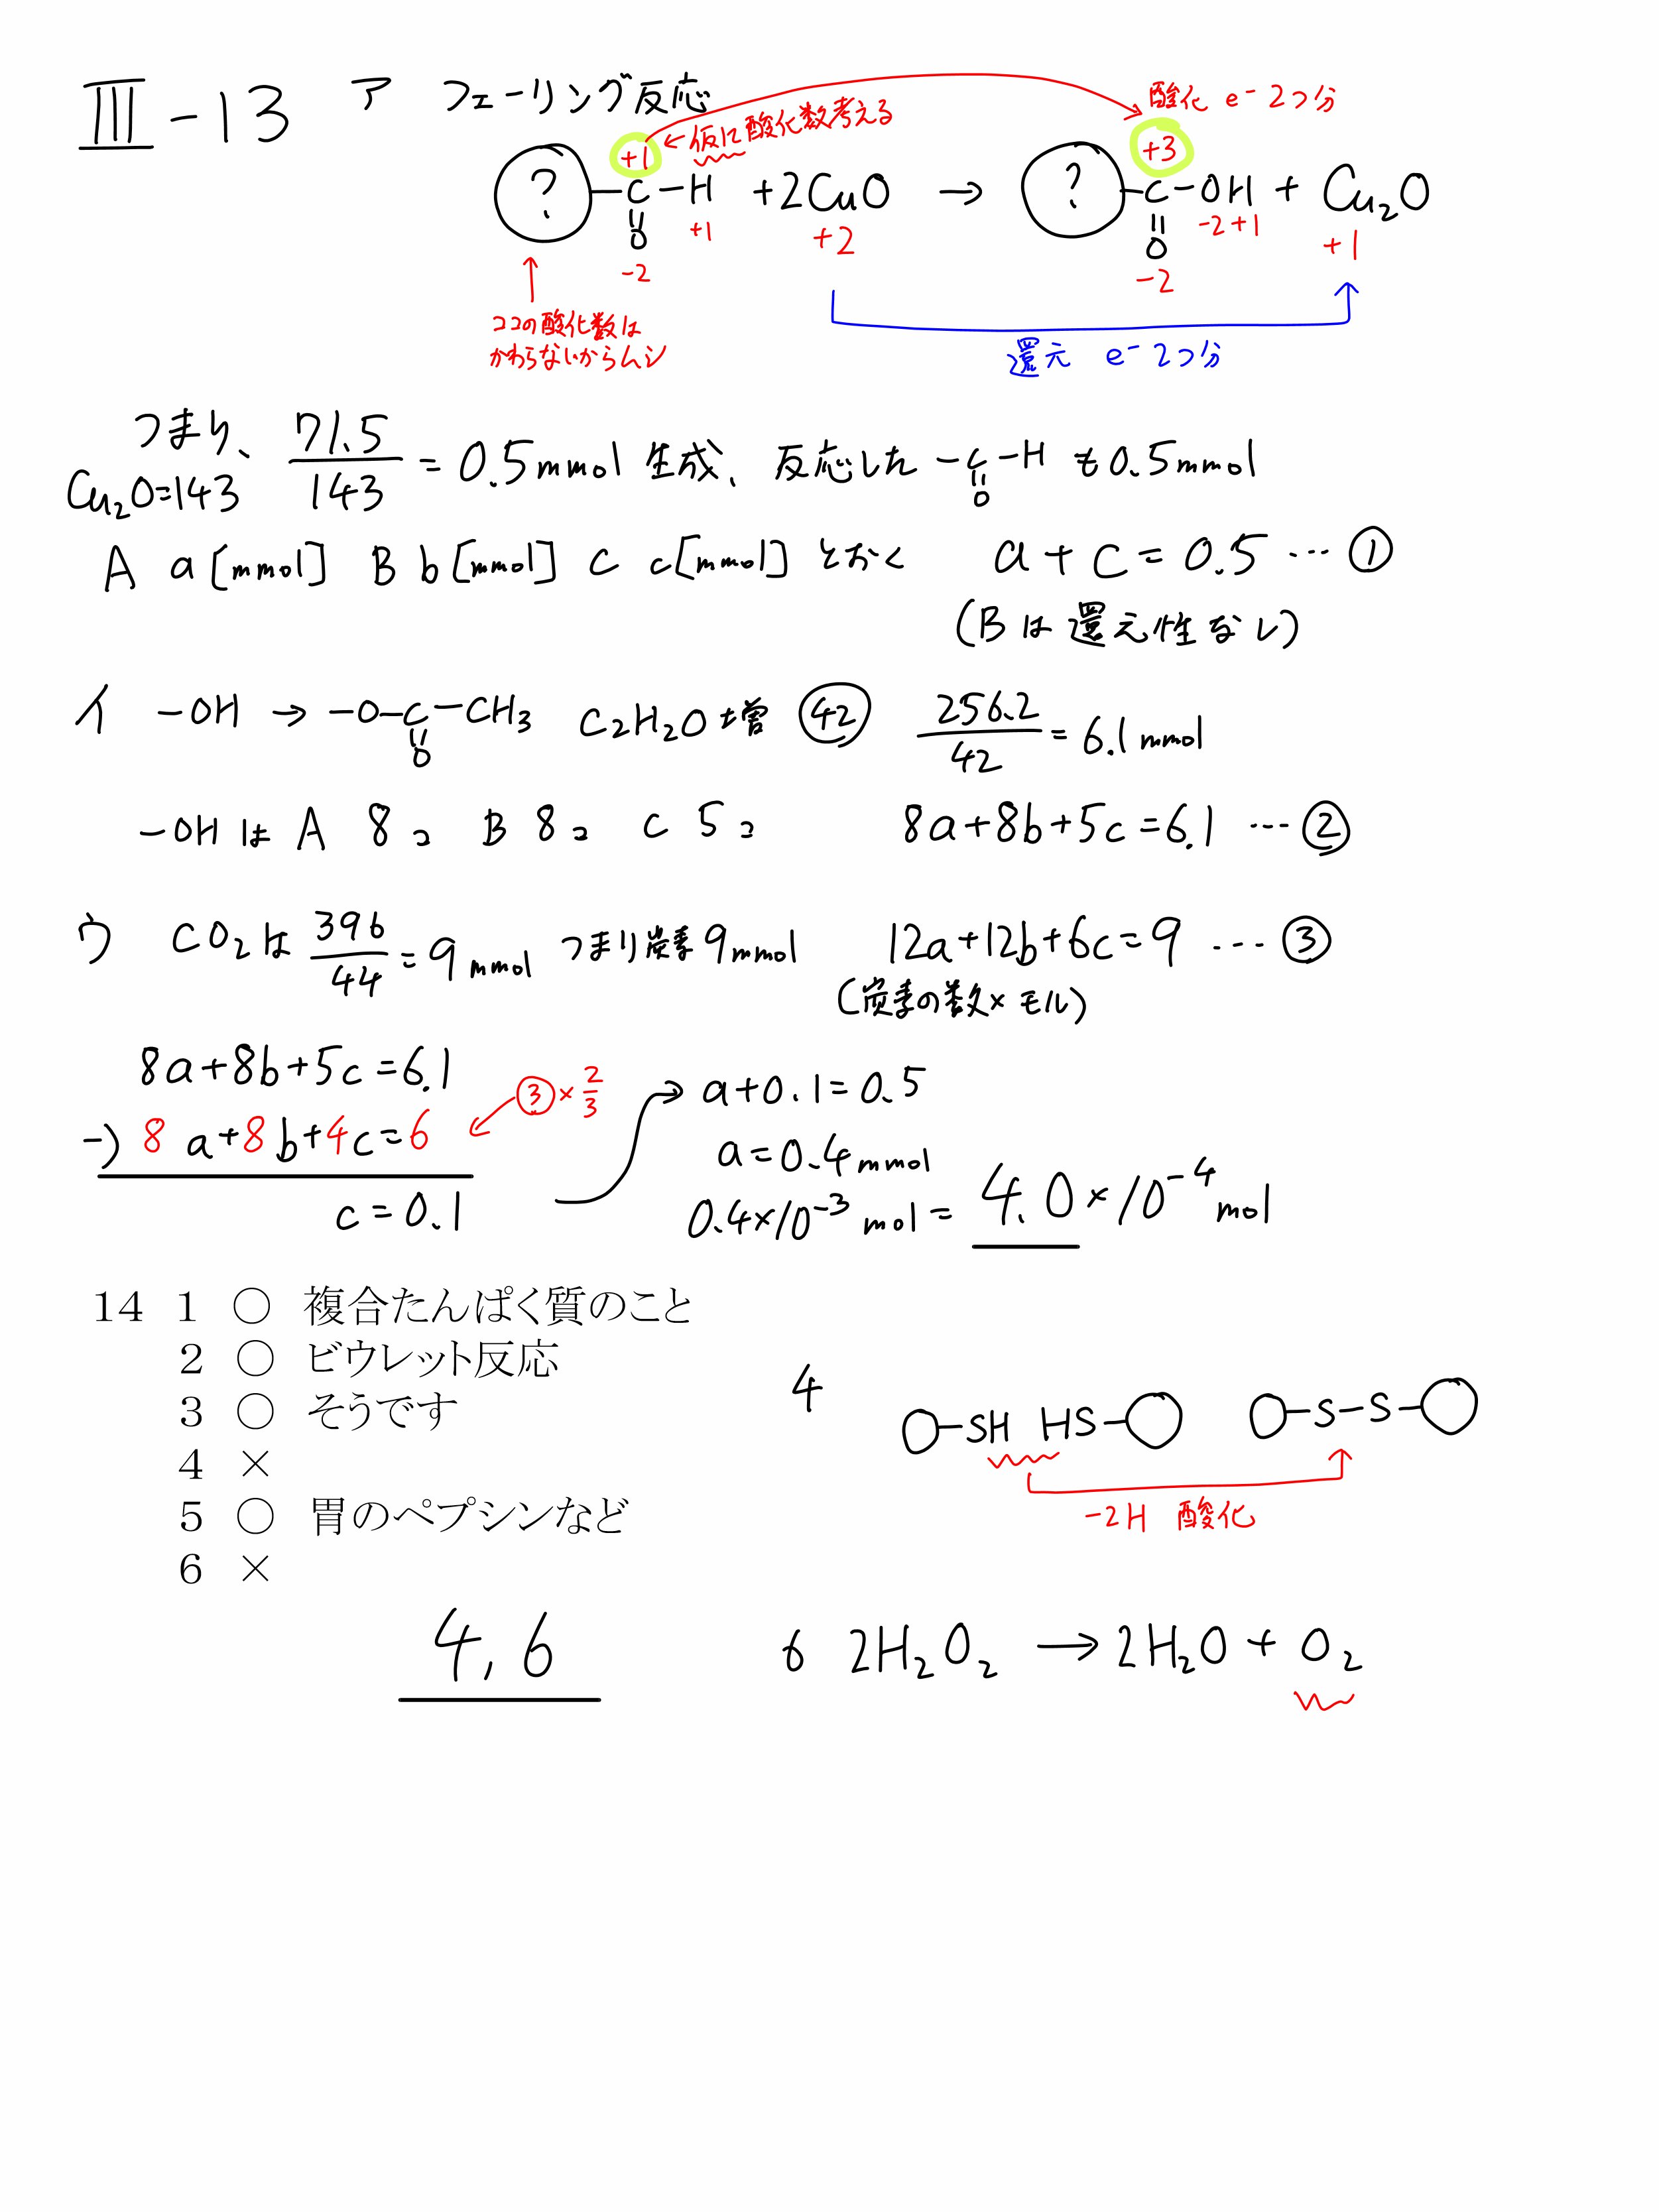 III-13 ア フェーリング反応
酸化 e⁻ 2つ分
+1 ←仮に酸化数考える
+3
?-C-H +2CuO → ?-C-OH + Cu₂O
+1 +2 -2+1 +1
O O
-2 -2
ココの酸化数は
かわらないからムシ
還元 e⁻ 2つ分
つまり、 71.5/143 = 0.5mmol 生成、反応した -C-H も0.5mmol
O
Cu₂O=143
A a[mmol] B b[mmol] C c[mmol] とおく a+c=0.5 … ①
(Bは還元性なし)
イ -OH → -O-C-CH₃ C₂H₂O増 42 256.2/42 = 6.1mmol
O
-OHは A 8コ B 8コ C 5コ 8a+8b+5c=6.1 … ②
ウ CO₂は 396/44 = 9mmol つまり炭素9mmol 12a+12b+6c=9 … ③
(炭素の数×モル)
8a+8b+5c=6.1
-) 8a+8b+4c=6 ← ③×2/3
c=0.1
→ a+0.1=0.5
a=0.4mmol
0.4×10⁻³mol= 4.0×10⁻⁴mol
14 1 ○ 複合たんぱく質のこと
2 ○ ビウレット反応
3 ○ そうです
4 ×
5 ○ 胃のペプシンなど
6 ×
4,6
4 ○-SH HS-○ ○-S-S-○
-2H 酸化
6 2H₂O₂ → 2H₂O + O₂